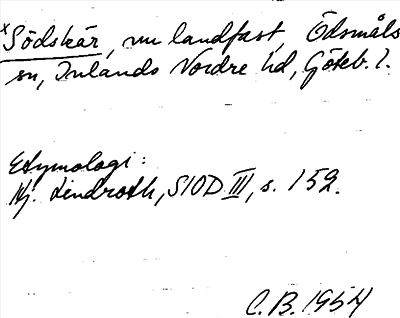 ×Södskär, nu landfast, Ödsmåls
sn, Inlands Nordre hd, Göteb. l.
Etymologi:
Hj. Lindroth, SIOD III, s. 152.
C.B. 1954